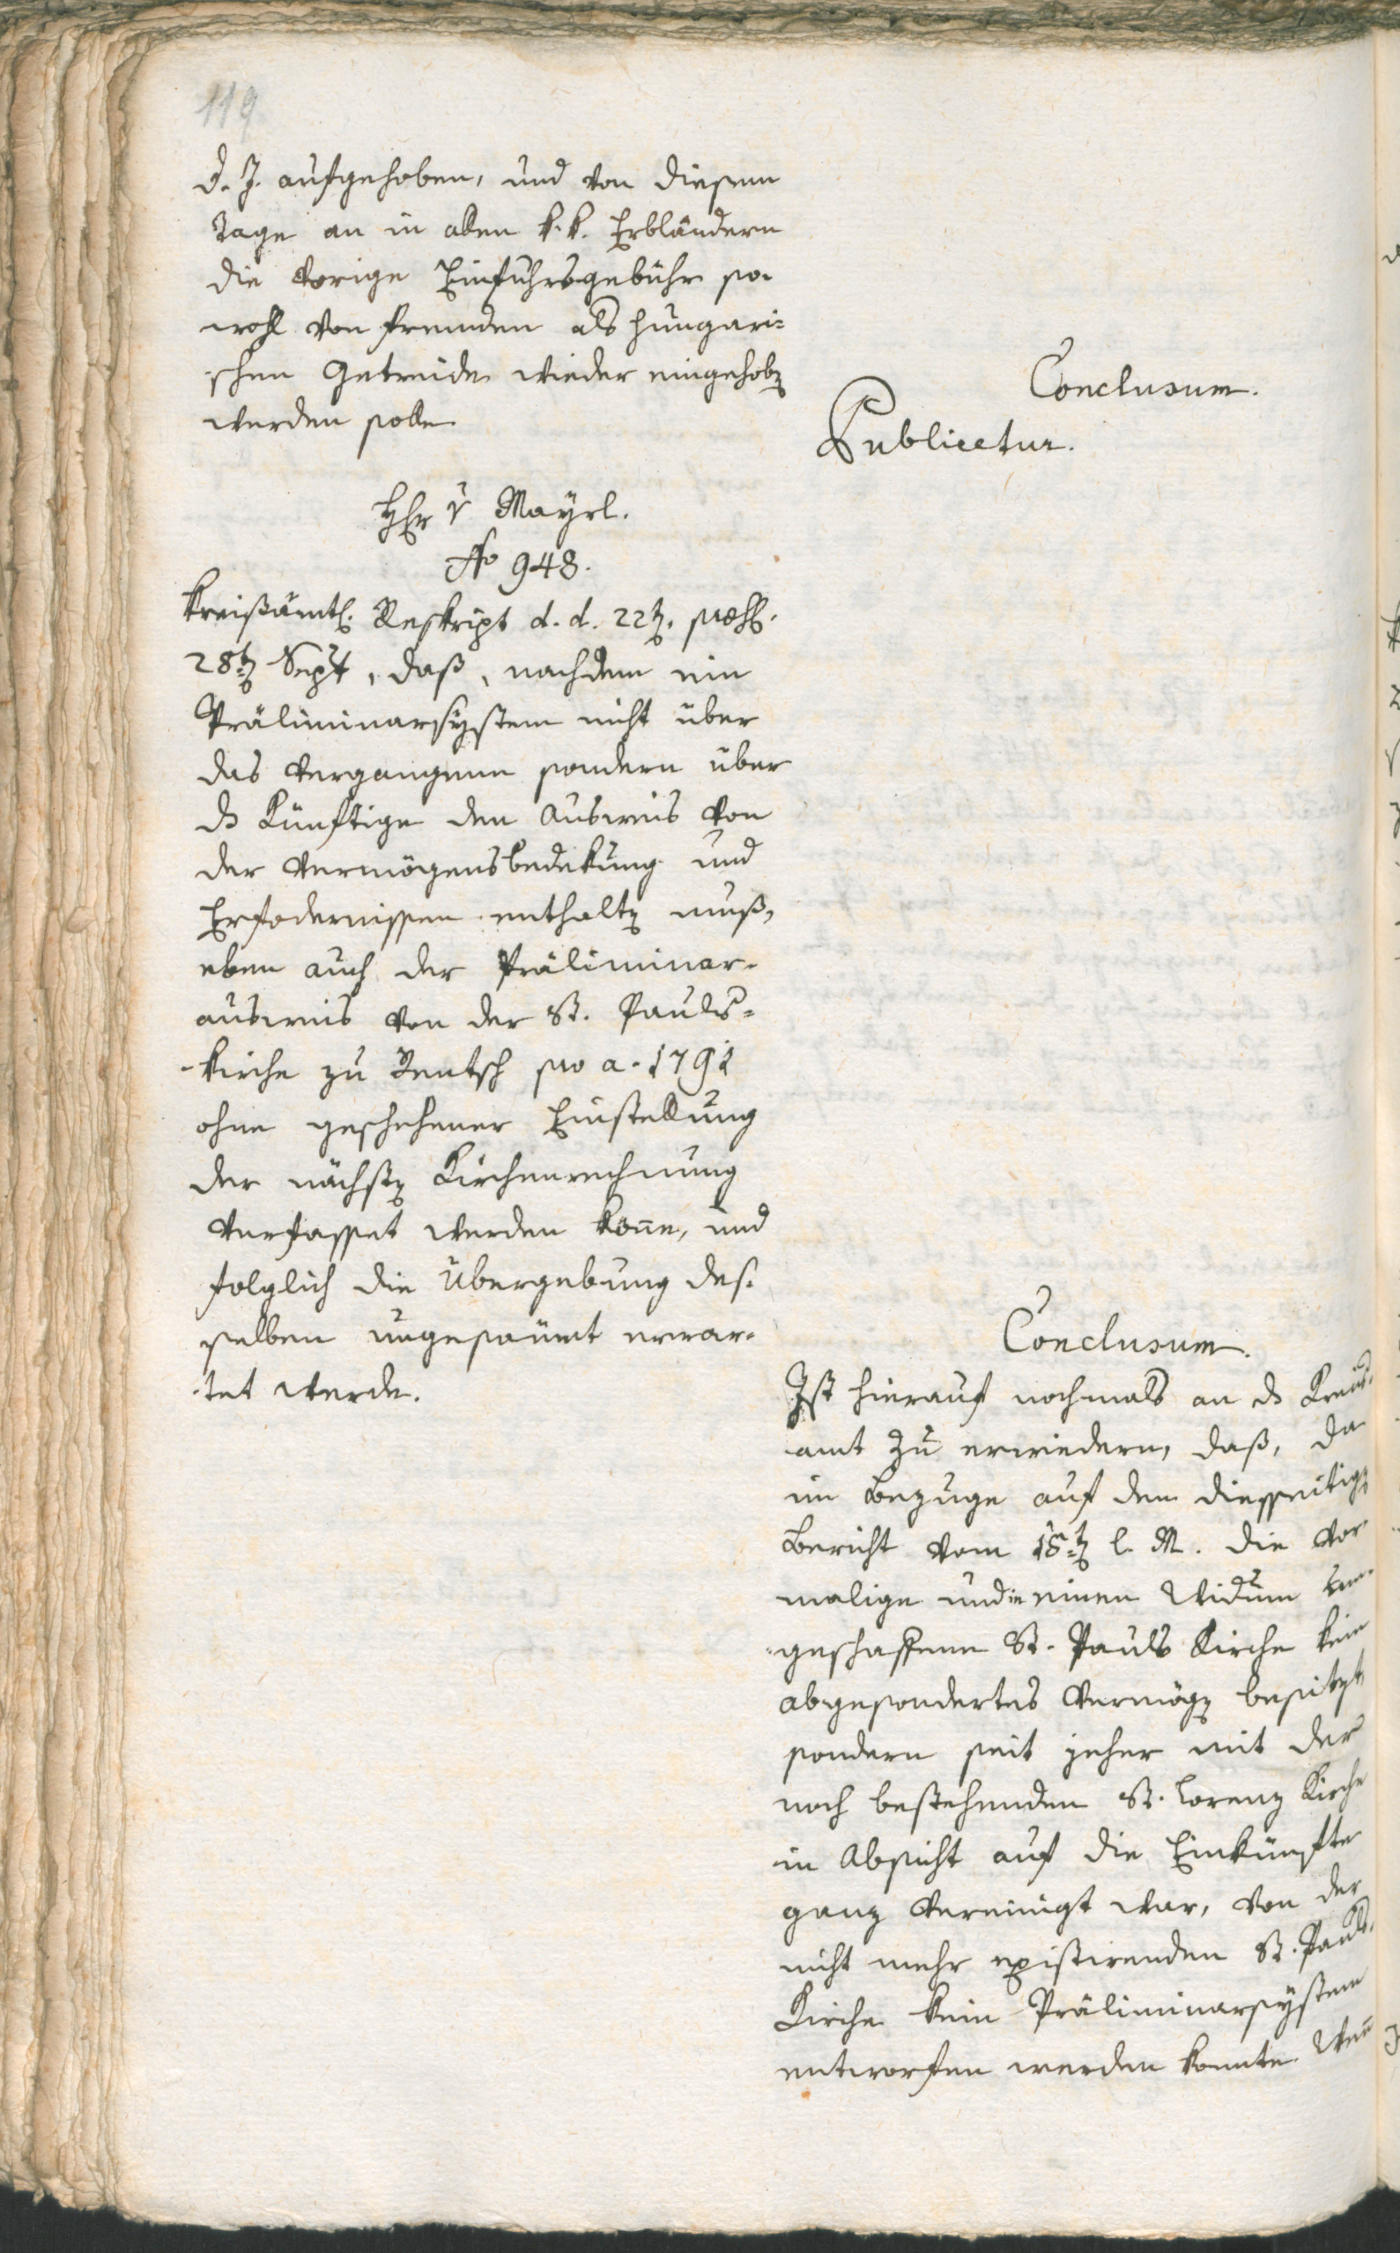 119
d. J. aufgehoben, und von diesem
Tage an in allen k. k. Erbländern
die vorige Einfuhrsgebühr so-
wohl von fremden als hungari=
schen Getreide wieder eingehobē
werden solle.
Conclusum.
Publicetur.
HEr v Mayrl.
No 948.
Kreisämtl. Reskript d. d. 22t. præs.
28t Sept, daß, nachdem ein
Präliminarsystem nicht über
das Vergangene sondern über
ds Künftige den Ausweis von
der Vermögensbedekung und
Erfodernissen enthaltē muß,
eben auch der Präliminar-
ausweis von der St. Pauls=
-kirche zu Rentsch pro a. 1791
ohne geschehener Einstellung
der nächstē Kirchenrechnung
verfasset werden könne, und
folglich die Übergebung des-
selben ungesäumt erwar-
-tet werde.
Conclusum.
Ist hierauf nochmals an ds Kreis-
amt zu erwiedern, daß, da
im Bezuge auf dem diesseitigē
Bericht vom 18t l. M. die vor-
malige und in einen Widum um-
geschaffene St. Pauls Kirche kein
abgesondertes Vermögē besitzt,
sondern seit jeher mit der
noch bestehenden St. Lorenz Kirche
in Absicht auf die Einkünfte
ganz vereinigt war, von der
nicht mehr existirenden St. Pauls-
Kirche kein Präliminarsystem
entworfen werden konnte. Weñ